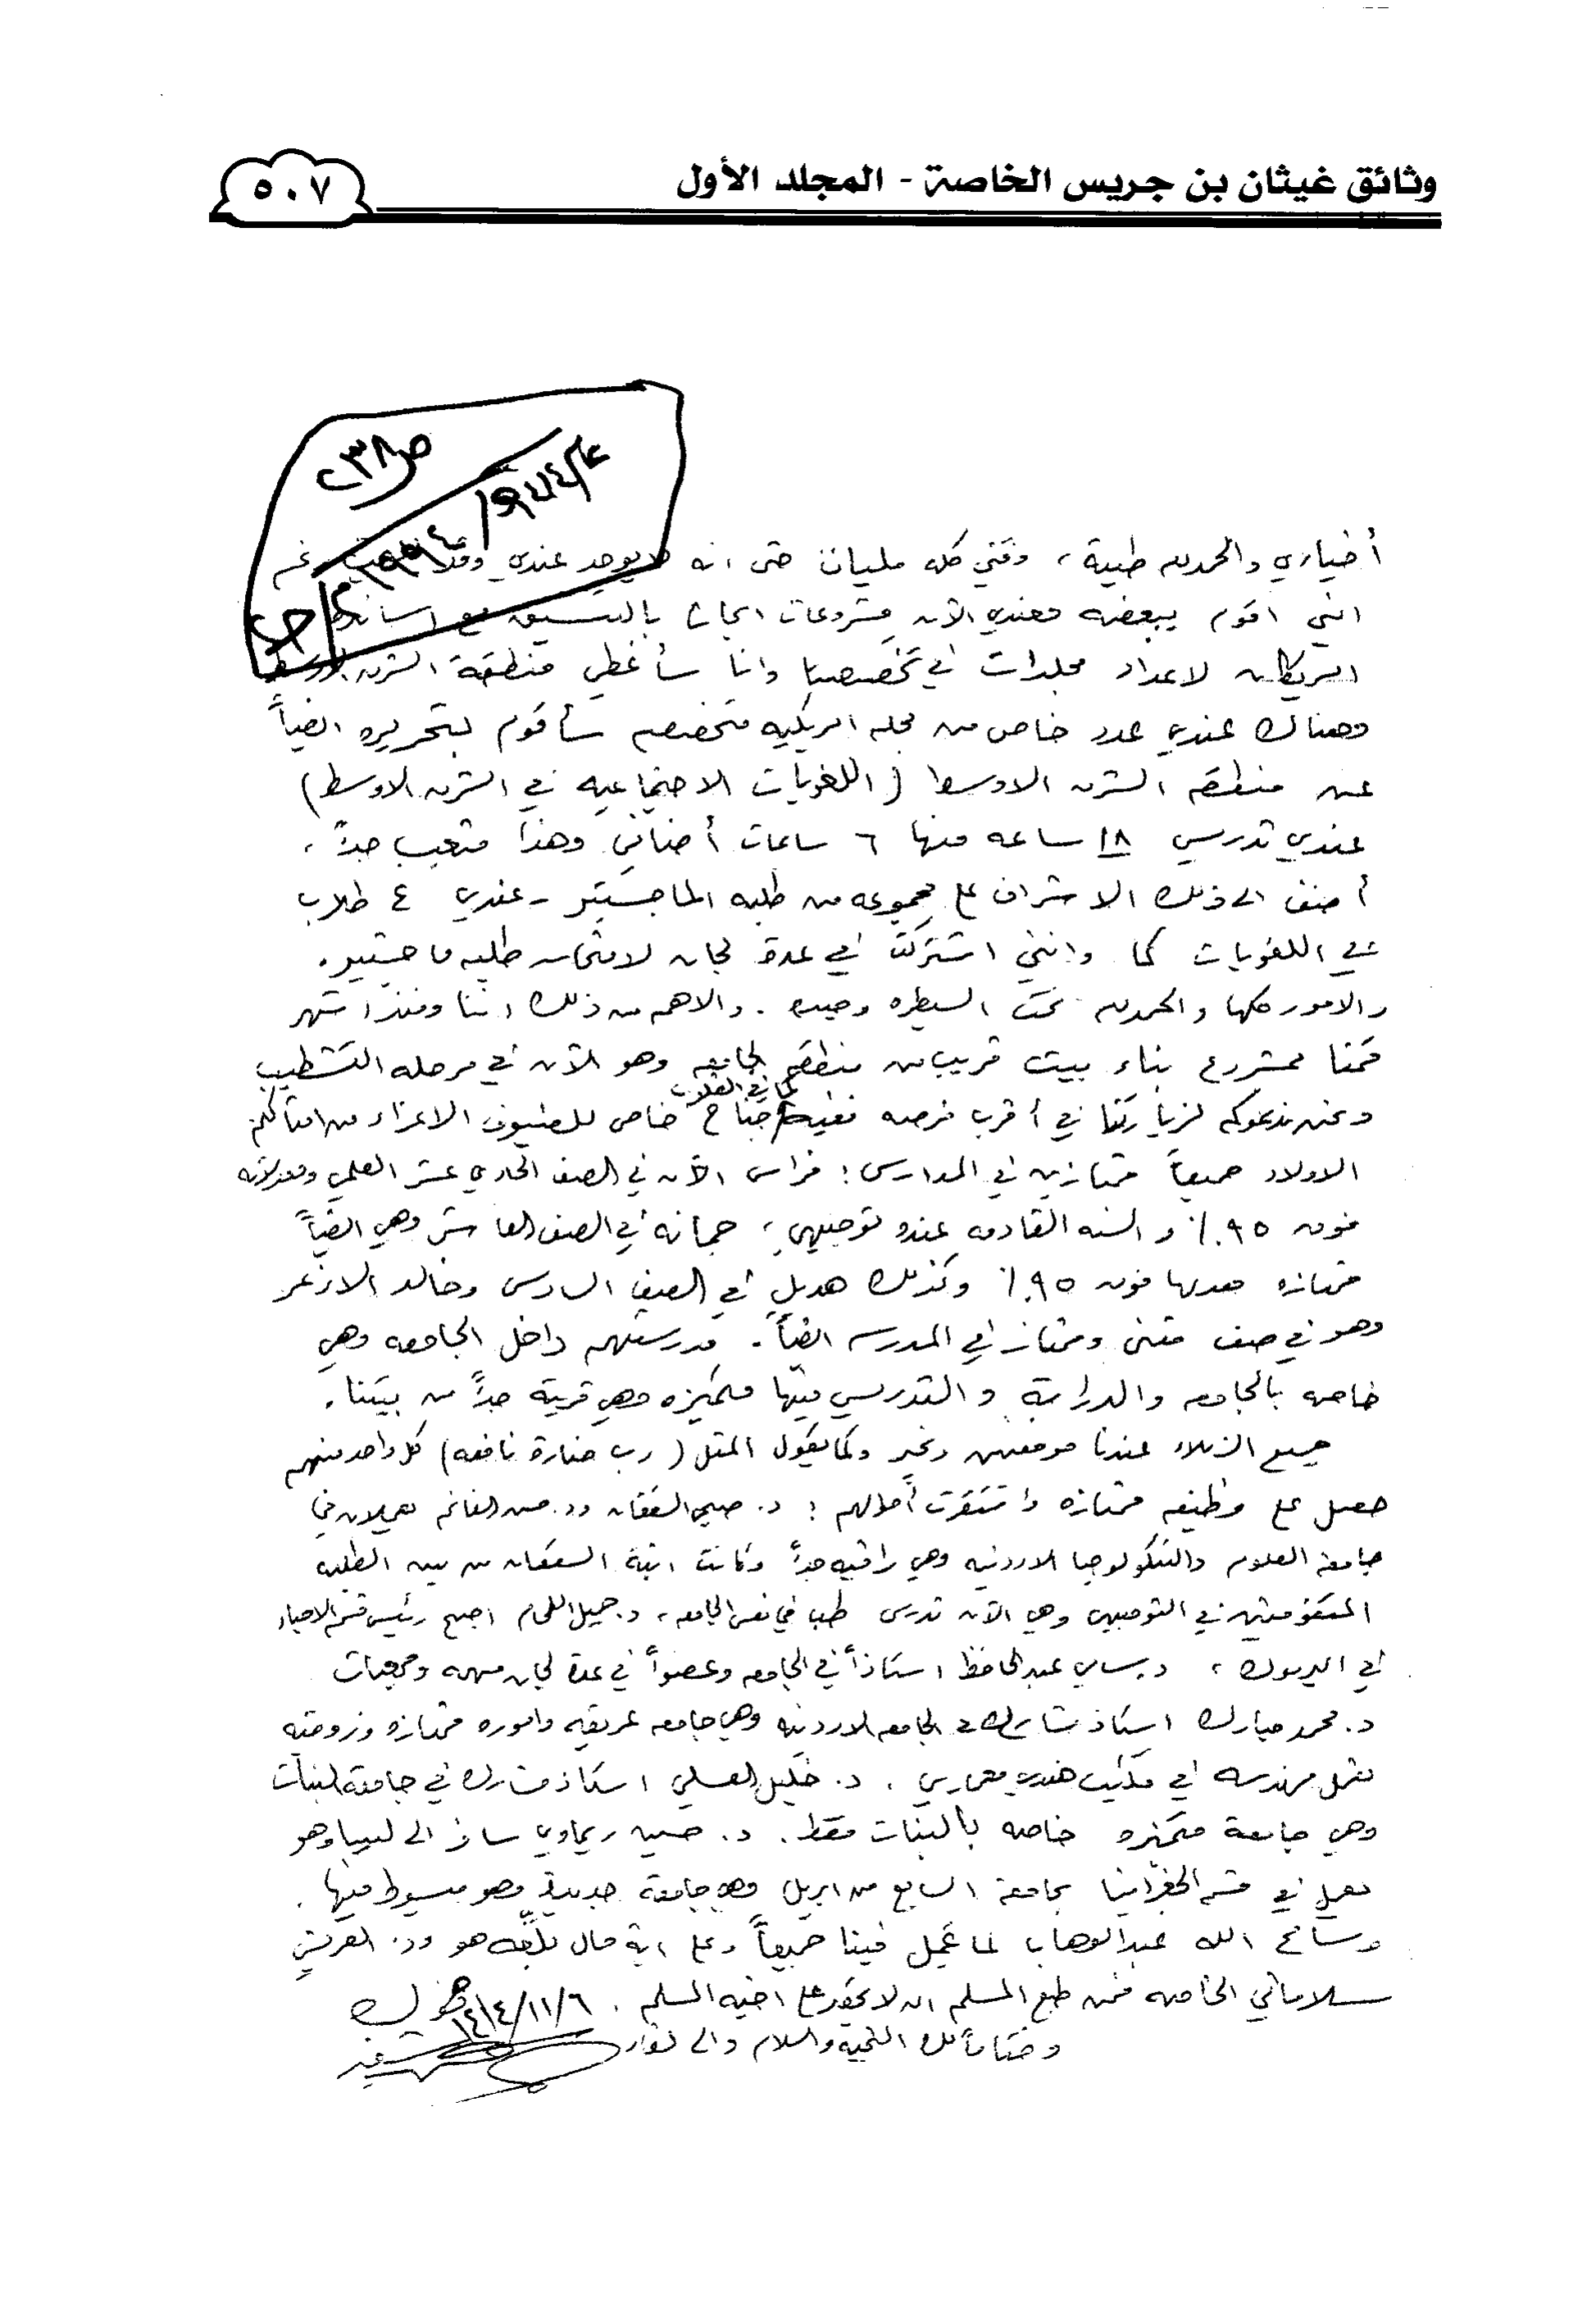 وثائق غيثان بن جريس الخاصة - المجلد الأول
٥٠٧
أخباري والحمدلله طيبة، وقتي كله مليان حتى انه لا يوجد عندي وقت رغم
انني اقوم ببعضه فعندي الآن مشروعات ابحاث بالتنسيق مع اساتذة
امريكان لاعداد مجلدات في تخصصنا وانا سأغطي منطقة الشرق الاوسط
وهناك عندي عدد خاص من مجله امريكيه متخصصه سأقوم بتحريره ايضاً
عن منطقه الشرق الاوسط (اللغويات الاجتماعيه في الشرق الاوسط)
عندي تدريس ١٨ ساعه منها ٦ ساعات أضافي وهذا متعب جداً،
أضف الى ذلك الاشراف على مجموعه من طلبه الماجستير - عندي ٤ طلاب
في اللغويات كما وانني اشتركت في عدة لجان لامتحان طلبه ماجستير.
والامور كلها والحمدلله تحت السيطره وجيده. والاهم من ذلك اننا ومنذ اشهر
قمنا بمشروع بناء بيت قريب من منطقه الجامعه وهو الآن في مرحله التشطيب
ونحن ندعوكم لزيارتنا في أقرب فرصه ففيه جناح خاص للضيوف الاعزاء من امثالكم
الاولاد جميعاً ممتازين في المدارس؛ فراس الآن في الصف الحادي عشر العلمي ومعدلاته
فوق ٩٥٪ والسنه القادمه عنده توجيهي، جمانه في الصف العاشر وهي ايضاً
ممتازه معدلها فوق ٩٥٪ وكذلك هديل في الصف السادس وخالد الازعر
وهو في صف وممتاز في المدرسه ايضاً. مدرستهم داخل الجامعه وهي
خاصه بالجامعه والدراسة والتدريس فيها متميزه وهي قريبة جداً من بيتنا.
جميع الزملاء عندنا موفقين وبخير وكما يقول المثل (رب ضارة نافعه) كل واحد منهم
حصل على وظيفه ممتازه واستقرت أحوالهم؛ د. صبحي السقفان ود. حسن الغانم يعملان في
جامعة العلوم والتكنولوجيا الاردنيه وهي راقيه جداً وكانت ابنة السقفان من بين الطلبه
المتفوقين في التوجيهي وهي الآن تدرس طب في نفس الجامعه، د. جميل اللحام اصبح رئيس قسم الاحياء
في اليرموك، د. سامي عبدالحافظ استاذاً في الجامعه وعضواً في عدة لجان مهمه وجمعيات
د. محمد مبارك استاذ مشارك في الجامعه الاردنيه وهي جامعه عريقه واموره ممتازه وزوجته
تعمل مهندسه في مكتب هندسي معماري. د. خليل العسلي استاذ مشارك في جامعة البنات
وهي جامعة متميزه خاصه بالبنات فقط. د. حسين ريماوي سافر الى ليبيا وهو
يعمل في قسم الجغرافيا بجامعة السابع من ابريل وهي جامعة جديدة وهو مبسوط فيها.
وسامح الله عبدالوهاب لما عمل فينا جميعاً وعلى اية حال بلّغه هو ود. القرشي
سلاماتي الخاصه فمن طبع المسلم ان لا يحقد على اخيه المسلم. ١٤١٤/١١/٦ اخوك
وختاماً لك التحيه والسلام والى لقاء